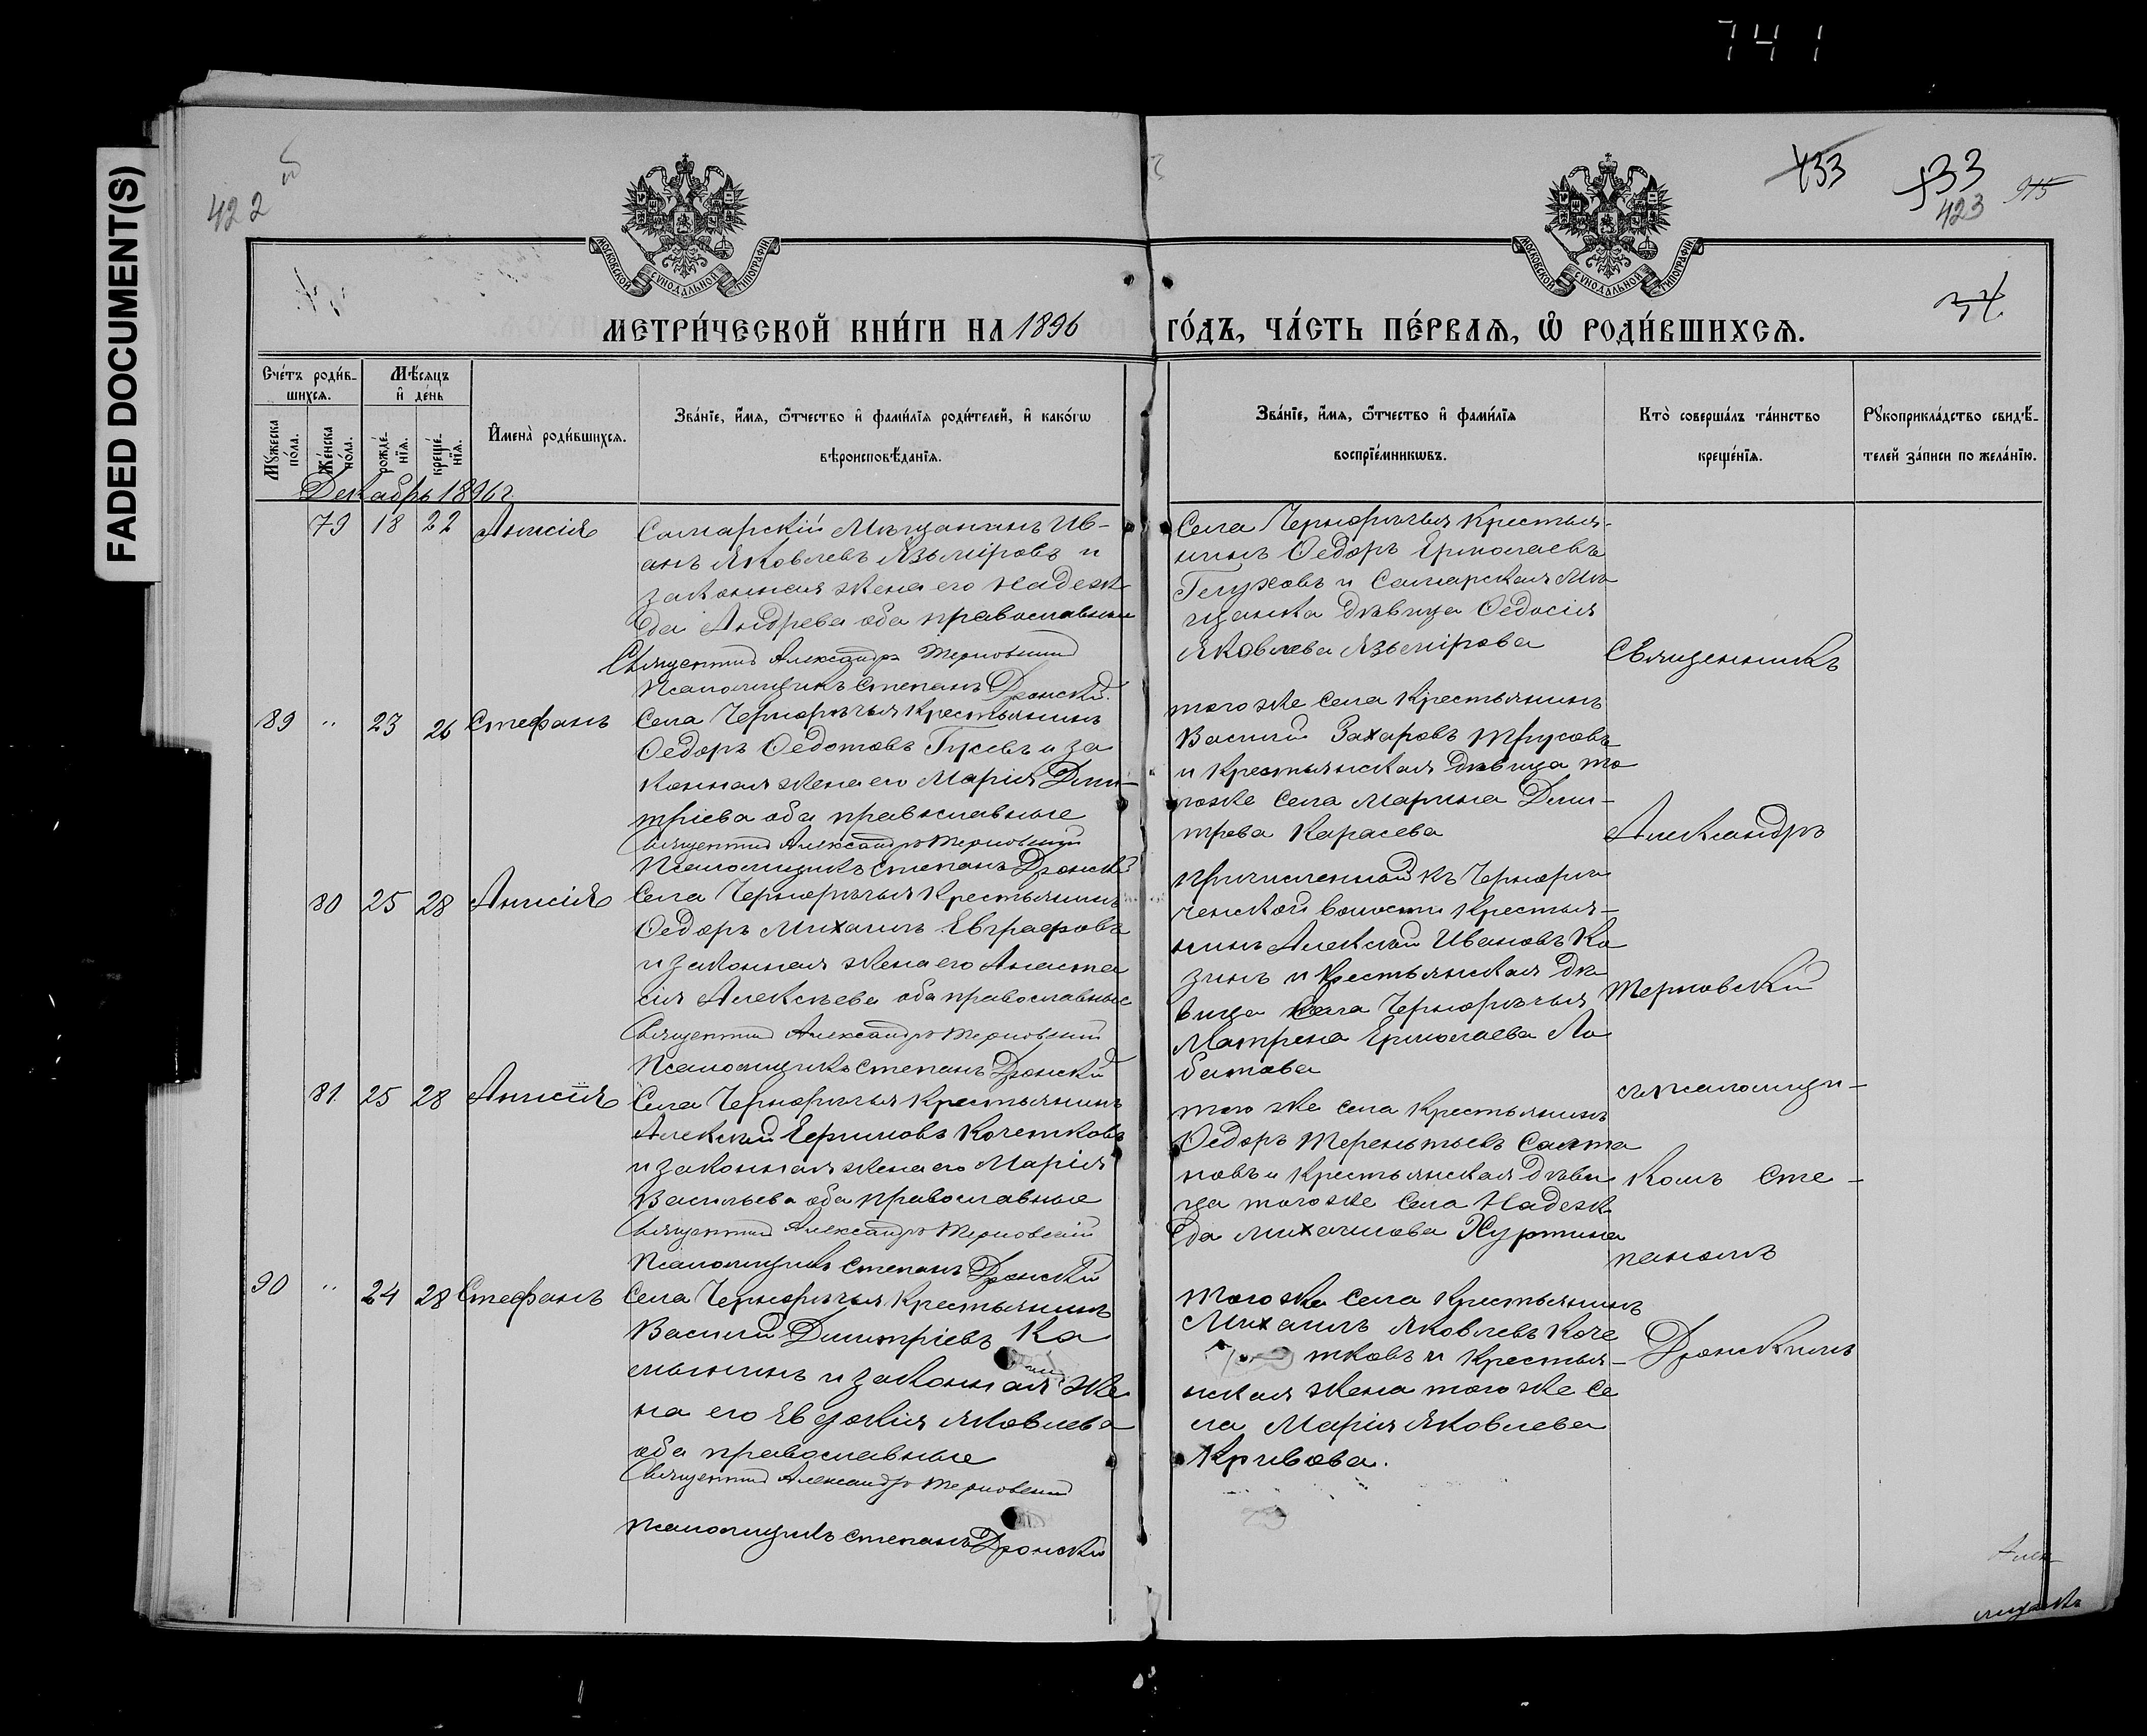 741
FADED DOCUMENT(S)
422
433
433
423
915
МОСКОВСКОЙ СѴНОДАЛЬНОЙ ТИПОГРАФІИ
МОСКОВСКОЙ СѴНОДАЛЬНОЙ ТИПОГРАФІИ
МЕТРИ́ЧЕСКОЙ КНИ́ГИ НА 1896
ГО́ДЪ, ЧА́СТЬ ПЕ́РВАѦ, Ѡ҆ РОДИ́ВШИХСѦ.
Сче́тъ роди́в-
шихсѧ.
Мѣ́сѧцъ
и҆ де́нь
Мꙋ́жеска
по́ла.
Же́нска
по́ла.
рожде́-
нїѧ.
креще́-
нїѧ.
И҆мена̀ роди́вшихсѧ.
Зва́нїе, и҆́мѧ, ѻ҆́тчество и҆ фами́лїѧ роди́телей, и҆ како́гѡ
вѣроисповѣ́данїѧ.
Зва́нїе, и҆́мѧ, ѻ҆́тчество и҆ фами́лїѧ
воспрїе́мникѡвъ.
Кто̀ соверша́лъ та́инство
креще́нїѧ.
Рꙋкоприкла́дство свидѣ́-
телей за́писи по жела́нїю.
Декабрь 1896 г
79 18 22 Анисія
Самарскій Мѣщанинъ Ив-
анъ Яковлевъ Язьміровъ и
законная жена его Надеж
да Андрева оба православные
Священникъ Александръ Терновскій
Псаломщикъ Степанъ Дронскій.
Села Чернорѣчья Крестья-
нинъ Ѳедоръ Ермолаевъ
Глуховъ и Самарская Мѣ
щанка дѣвица Ѳедосія
Яковлева Язьмірова
89 " 23 26 Стефанъ
Села Чернорѣчья Крестьянинъ
Ѳедоръ Ѳедотовъ Гусевъ и за
конная жена его Марія Дми-
тріева оба православные
Священникъ Александръ Терновскій
Псаломщикъ Степанъ Дронскій
того же села Крестьянинъ
Василій Захаровъ Трусовъ
и Крестьянская дѣвица то
гоже села Марина Дми-
трева Карасева
80 25 28 Анисія
Села Чернорѣчья Крестьянинъ
Ѳедоръ Михаилъ Евграфовъ
и законная жена его Анаста
сія Алексѣева оба православные
Священникъ Александръ Терновскій
Псаломщикъ Степанъ Дронскій
причисленной къ Чернорѣ
ченской волости Крестья-
нинъ Алексѣй Ивановъ Ка
зинъ и Крестьянская дѣ
вица села Чернорѣчья
Матрена Ермолаева Ло
батова
81. 25 28 Анисія
Села Чернорѣчья Крестьянинъ
Алексѣй Ефимовъ Кочетковъ
и законная жена его Марія
Васильева оба православные
Священникъ Александръ Терновскій
Псаломщикъ Степанъ Дронскій
того же села Крестьянинъ
Ѳедоръ Терентьевъ Салта
новъ и Крестьянская дѣви
ца того же села Надеж
да Михаилова Куртина
90 " 24 28 Стефанъ
Села Чернорѣчья Крестьянинъ
Василій Дмитріевъ Ка
мынинъ и законная же
на его Евдокія Яковлева
оба православные
Священникъ Александръ Терновскій
Псаломщикъ Степанъ Дронскій
Того же села Крестьянинъ
Михаилъ Яковлевъ Коче
тковъ и крестья-
нская жена того же се
ла Марія Яковлева
Кривова.
Священникъ
Александръ
Терновскій
съ псаломщи-
комъ Сте-
паномъ
Дронскимъ